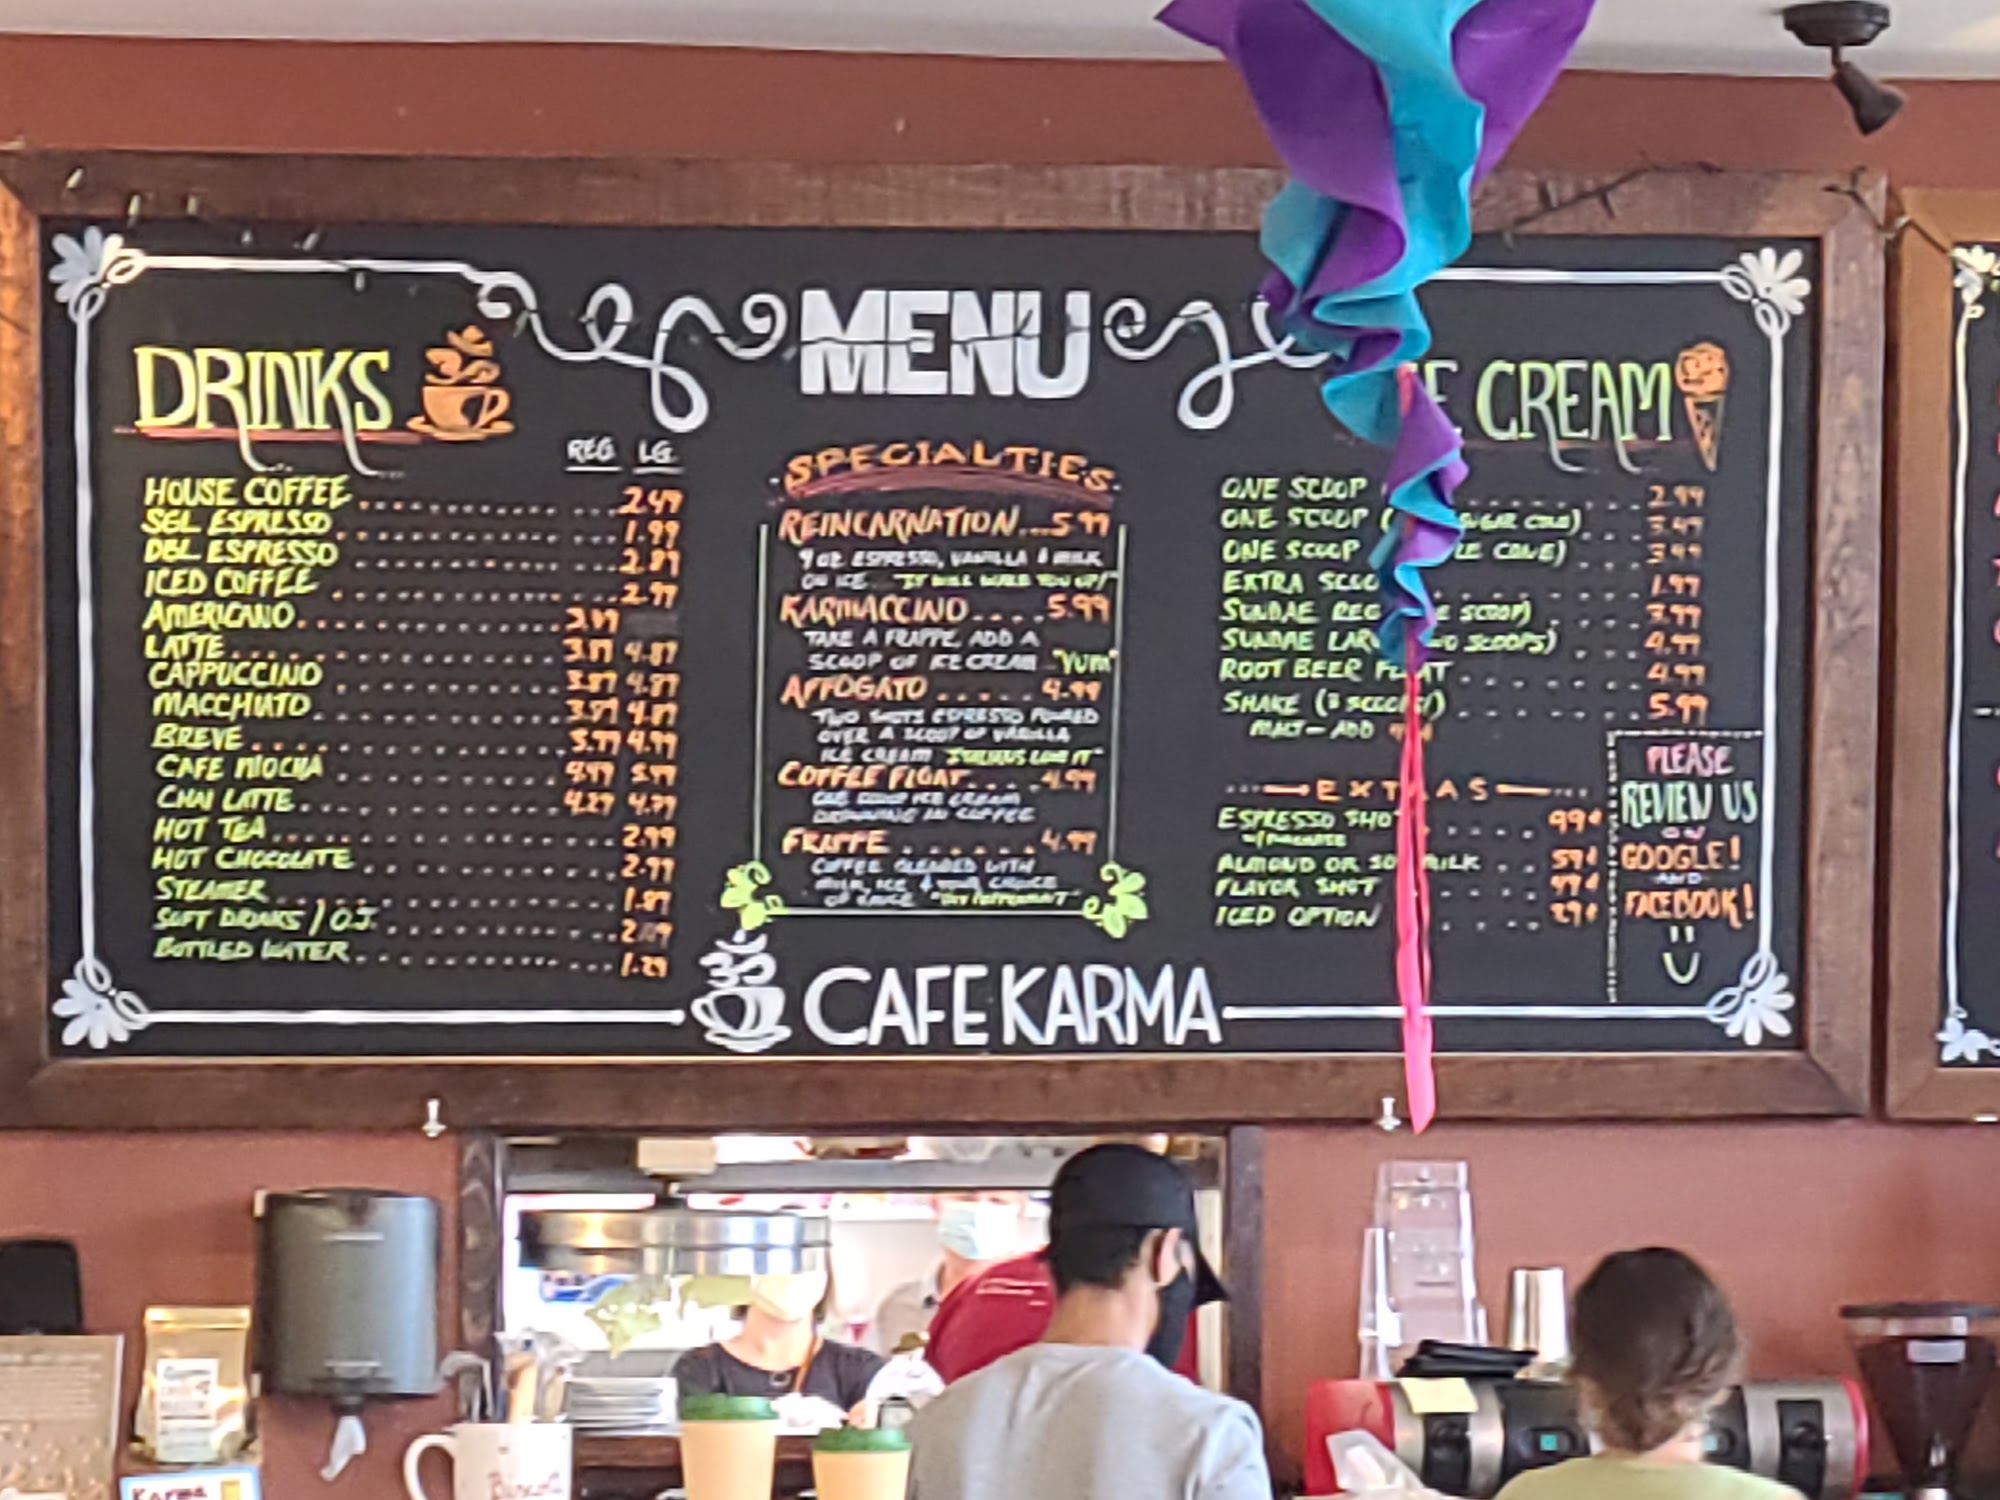 MENU
DRINKS
REG. LG.
HOUSE COFFEE 2.49
SGL ESPRESSO 1.99
DBL ESPRESSO 2.89
ICED COFFEE 2.99
AMERICANO
LATTE 3.89 4.89
CAPPUCCINO 3.89 4.89
MACCHIATO 3.89 4.89
BREVE 3.99 4.99
CAFE MOCHA 4.49 5.49
CHAI LATTE 4.29 4.79
HOT TEA 2.99
HOT CHOCOLATE 2.99
STEAMER 1.89
SOFT DRINKS / O.J.
BOTTLED WATER 1.29
SPECIALTIES
REINCARNATION...5.99
ESPRESSO, VANILLA & MILK
ON ICE "IT WILL WAKE YOU UP!"
KARMACCINO....5.99
TAKE A FRAPPE, ADD A
SCOOP OF ICE CREAM "YUM"
AFFOGATO.....4.99
TWO SHOTS ESPRESSO POURED
OVER A SCOOP OF VANILLA
ICE CREAM
COFFEE FLOAT...4.99
ONE SCOOP ICE CREAM
DROWNING IN COFFEE
FRAPPE......4.99
COFFEE BLENDED WITH
MILK, ICE & YOUR CHOICE
OF SAUCE
E CREAM
ONE SCOOP 2.99
ONE SCOOP SUGAR CONE) 3.49
ONE SCOOP LE CONE) 3.99
EXTRA SCOO 1.99
SUNDAE REG E SCOOP) 3.99
SUNDAE LAR WO SCOOPS) 4.99
ROOT BEER FL AT 4.99
SHAKE (3 SCOOPS!) 5.99
MALT - ADD
EXT AS
ESPRESSO SHOT 99¢
W/PURCHASE
ALMOND OR SO MILK 59¢
FLAVOR SHOT 99¢
ICED OPTION 29¢
PLEASE
REVIEW US
ON
GOOGLE!
AND
FACEBOOK!
CAFE KARMA
Karma